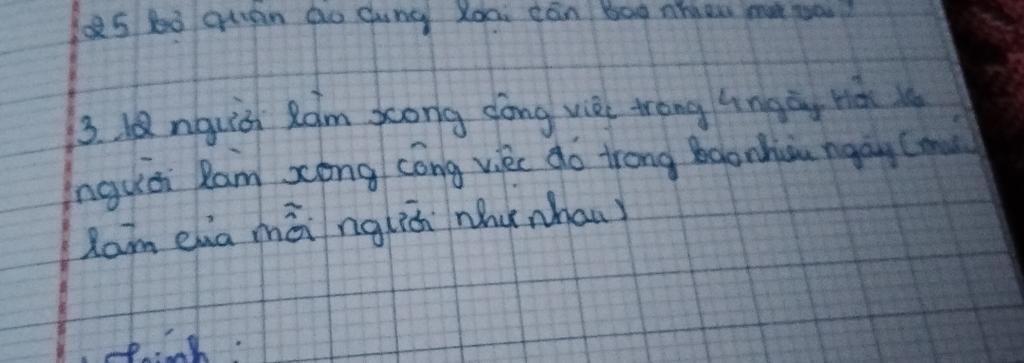 25 bộ quần áo cùng loại cần bao nhiêu mét vải?
3. 12 người làm xong công việc trong 4 ngày Hỏi 16
người làm xong công việc đó trong bao nhiêu ngày (mức
làm của mỗi người như nhau)